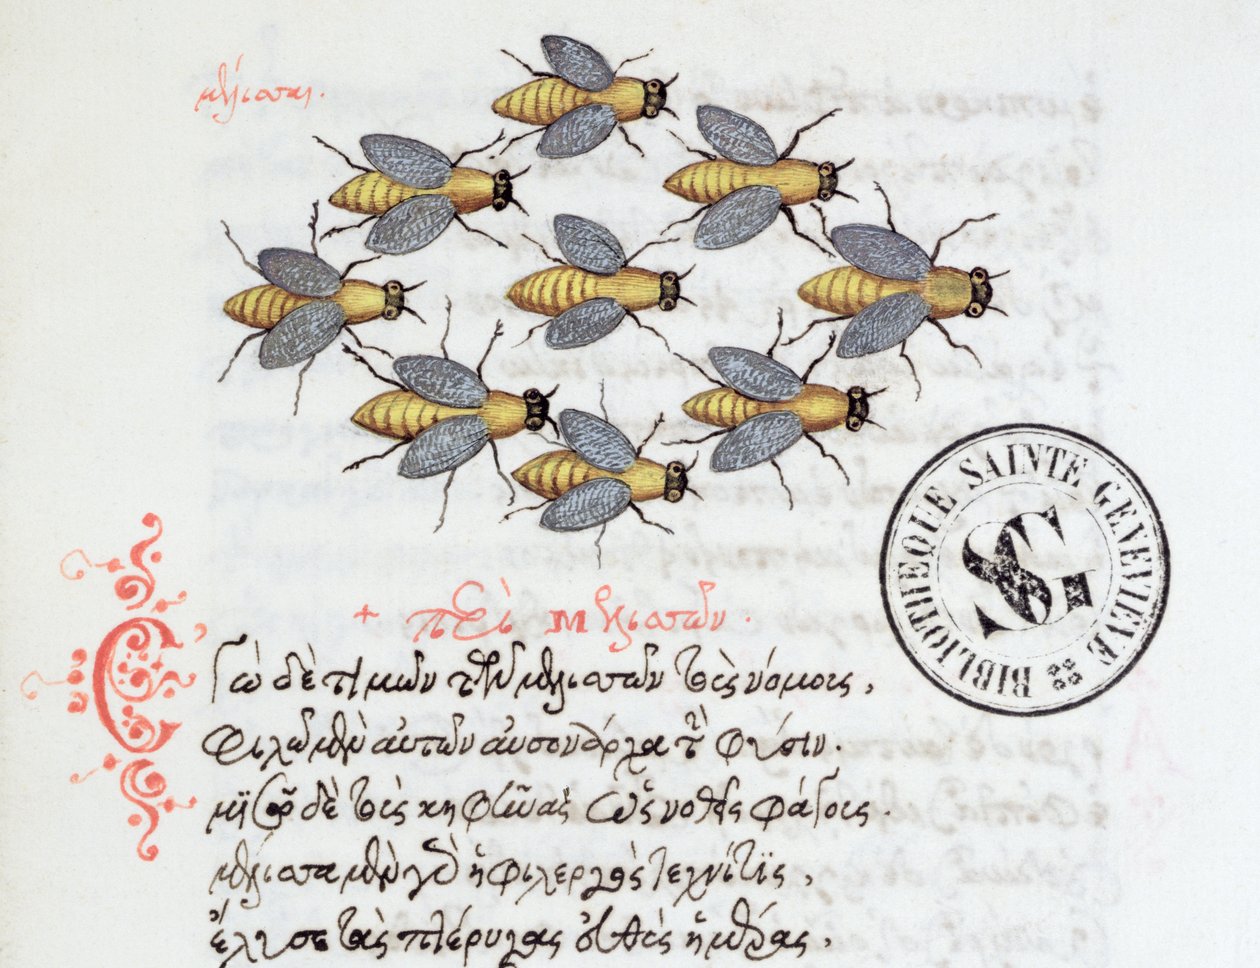 μέλισσαι.
+ περὶ μελισσῶν.
Ἐγὼ δὲ τιμῶν τῶν μελισσῶν τοὺς νόμους,
Φιλῶ μὲν αὐτῶν τὴν φύσιν.
μισῶ δὲ τοὺς κηφῆνας ὡς νόθους φάγους.
μέλισσα μὲν γὰρ ἡ φιλεργὸς τεχνίτις,
τὰς πτέρυγας εὐθὺς ἡμέρας,
BIBLIOTHEQUE SAINTE GENEVIEVE
SG